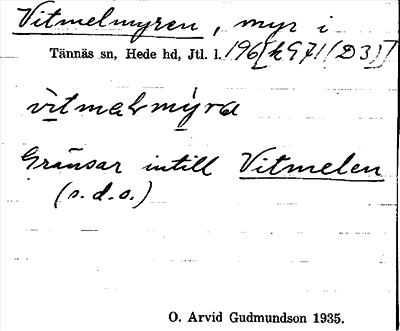 Vitmelmyren, myr i
Tännäs sn, Hede hd, Jtl. l. 196[k971(D3)]
vitmelmýra
Gränsar intill Vitmelen
(s.d.o.)
O. Arvid Gudmundson 1935.